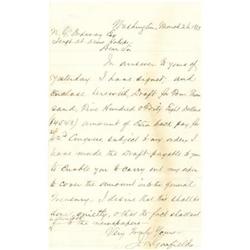 Washington, March 26
Dear Sir
In answer to yours of
yesterday I have signed, and
enclose herewith, Draft for Four Thou
sand, Five Hundred & Forty Eight Dollars
(4548) amount of Extra back pay for
42nd Congress subject to my order
I have made the Draft payable to you
to enable you to carry out my
to cover the amount into the General
Treasury. I desire that this shall be
done quietly, & that the fact shall not
to the newspapers
Very Truly Yours